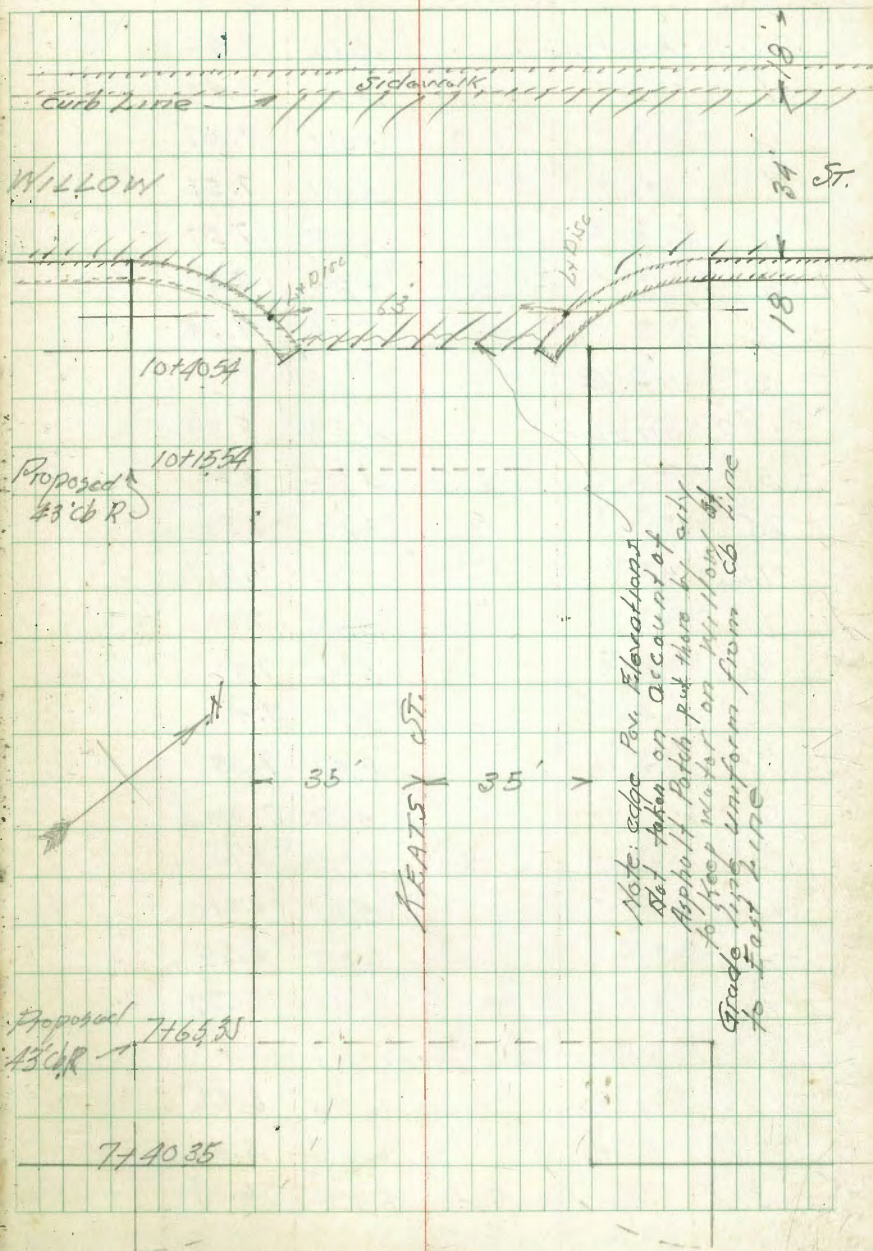 18'
Sidewalk
Curb Line
WILLOW
34'
ST.
L&Disc
L&Disc
63'
18
10+4054
10+1554
Proposed
43' cb R
35'
KEATS ST.
35'
Note: edge Pav. Elevations
Not taken on account of
Asphalt Patch put there by city
to keep water on Willow St
Grade line uniform from cb Line
to East Line
Proposed
43' cb R
7+65.35
7+4035